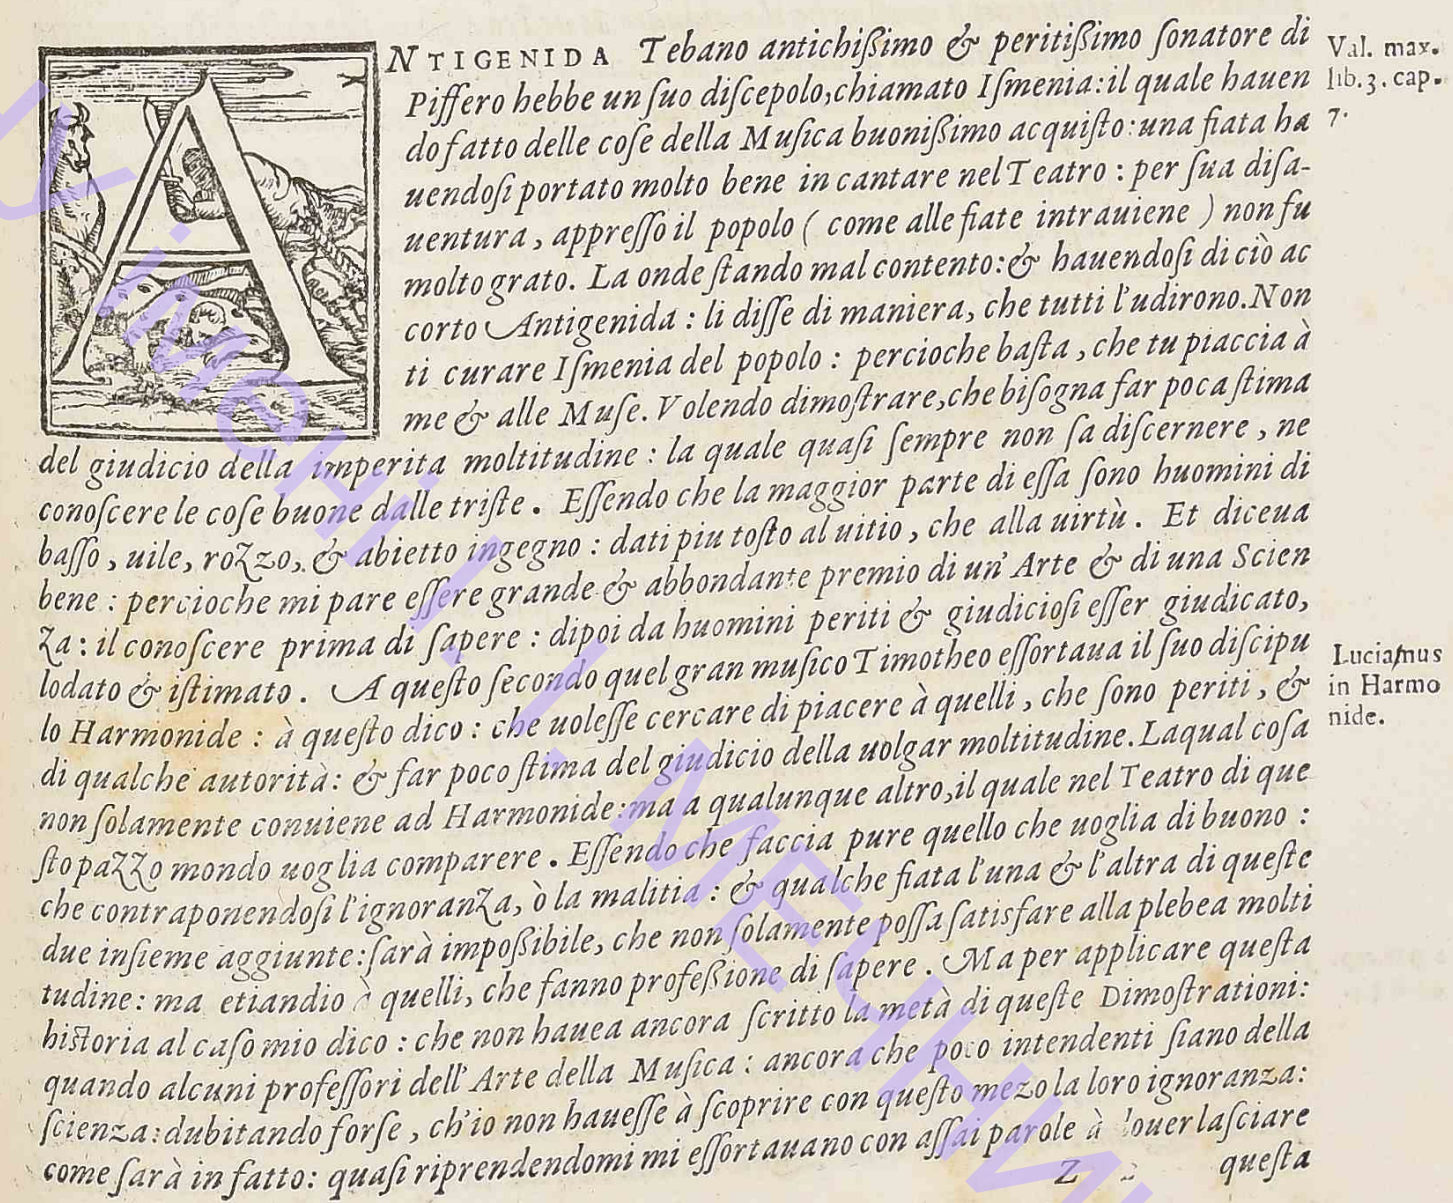 ANTIGENIDA Tebano antichißimo & peritißimo ſonatore di
Piffero hebbe un ſuo diſcepolo,chiamato Iſmenia:il quale hauen
do fatto delle coſe della Muſica buonißimo acquiſto:una fiata ha
uendoſi portato molto bene in cantare nel Teatro : per ſua diſa-
uentura, appreſſo il popolo ( come alle fiate intrauiene ) non fu
molto grato. La onde ſtando mal contento:& hauendoſi di ciò ac
corto Antigenida : li diſſe di maniera, che tutti l'udirono.Non
ti curare Iſmenia del popolo : percioche baſta , che tu piaccia à
me & alle Muſe. Volendo dimoſtrare,che biſogna far poca ſtima
del giudicio della imperita moltitudine : la quale quaſi ſempre non ſa diſcernere , ne
conoſcere le coſe buone dalle triſte . Eſſendo che la maggior parte di eſſa ſono huomini di
baſſo , uile, rozzo, & abietto ingegno : dati piu toſto al uitio , che alla uirtù . Et diceua
bene : percioche mi pare eſſere grande & abbondante premio di un' Arte & di una Scien
za : il conoſcere prima di ſapere : dipoi da huomini periti & giudicioſi eſſer giudicato,
lodato & iſtimato . A queſto ſecondo quel gran muſico Timotheo eſſortaua il ſuo diſcipu
lo Harmonide : à queſto dico : che uoleſſe cercare di piacere à quelli , che ſono periti , &
di qualche autorità : & far poco ſtima del giudicio della uolgar moltitudine. Laqual coſa
non ſolamente conuiene ad Harmonide:ma a qualunque altro,il quale nel Teatro di que
ſto pazzo mondo uoglia comparere . Eſſendo che faccia pure quello che uoglia di buono :
che contraponendoſi l'ignoranza, ò la malitia : & qualche fiata l'una & l'altra di queſte
due inſieme aggiunte:ſarà impoßibile, che non ſolamente poſſa ſatisfare alla plebea molti
tudine: ma etiandio à quelli, che fanno profeßione di ſapere . Ma per applicare queſta
hiſtoria al caſo mio dico : che non hauea ancora ſcritto la metà di queſte Dimoſtrationi:
quando alcuni profeſſori dell' Arte della Muſica : ancora che poco intendenti ſiano della
ſcienza:dubitando forſe , ch'io non haueſſe à ſcoprire con queſto mezo la loro ignoranza:
come ſarà in fatto: quaſi riprendendomi mi eſſortauano con aſſai parole à douer laſciare
Z queſta
Val. max.
lib.3.cap.
7.
Lucianus
in Harmo
nide.